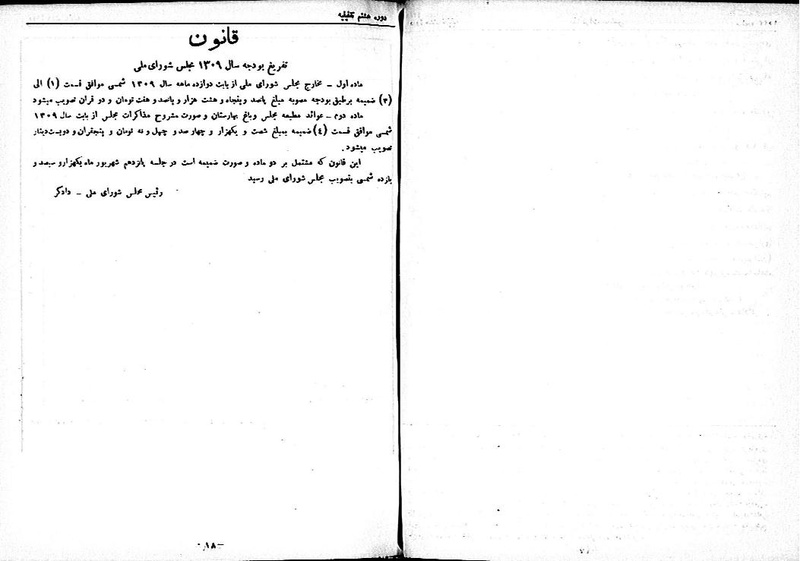 دوره هشتم تقنینیه
قانون
تفریغ بودجه سال ۱۳۰۹ مجلس شورای ملی
ماده اول - مخارج مجلس شورای ملی از بابت دوازده ماهه سال ۱۳۰۹ شمسی موافق قسمت (۱) الی
(۳) ضمیمه برطبق بودجه مصوبه مبلغ پانصد و پنجاه و هشت هزار و پانصد و هفت تومان و دو قران تصویب میشود
ماده دوم - عوائد مطبعه مجلس و باغ بهارستان و صورت مشروح مذاکرات مجلس از بابت سال ۱۳۰۹
شمسی موافق قسمت (٤) ضمیمه بمبلغ شصت و یکهزار و چهارصد و چهل و نه تومان و پنجقران و دویست دینار
تصویب میشود.
این قانون که مشتمل بر دو ماده و صورت ضمیمه است در جلسه پانزدهم شهریور ماه یکهزار و سیصد و
یازده شمسی بتصویب مجلس شورای ملی رسید
رئیس مجلس شورای ملی - دادگر
-۱۸-